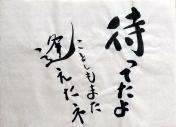 待ってたよ
ことしもまた
逢えたネ